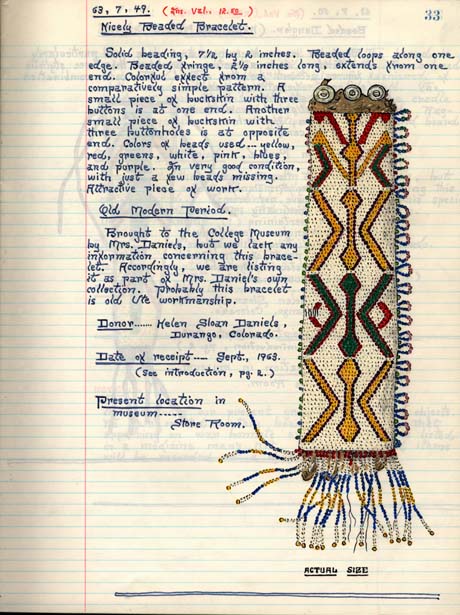 63, 7, 49. (Ins. Val., 12.50)
33
Nicely Beaded Bracelet.
Solid beading, 7½ by 2 inches. Beaded loops along one
edge. Beaded fringe, 2½ inches long, extends from one
end. Colorful effect from a
comparatively simple pattern. A
small piece of buckskin with three
buttons is at one end. Another
small piece of buckskin with
three buttonholes is at opposite
end. Colors of beads used... yellow,
red, greens, white, pink, blues,
and purple. In very good condition,
with just a few beads missing.
Attractive piece of work.
Old Modern Period.
Brought to the College Museum
by Mrs. Daniels, but we lack any
information concerning this brace-
let. Accordingly, we are listing
it as part of Mrs. Daniel's own
collection. Probably this bracelet
is old Ute workmanship.
Donor...... Helen Sloan Daniels,
Durango, Colorado.
Date of receipt.... Sept., 1963.
(see introduction, pg. 2.)
Present location in
museum-----
Store Room.
ACTUAL SIZE